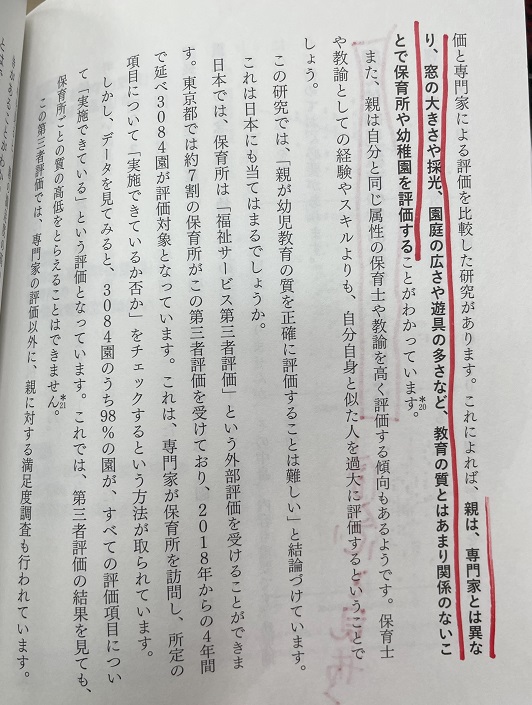 価と専門家による評価を比較した研究があります。これによれば、親は、専門家とは異な
り、窓の大きさや採光、園庭の広さや遊具の多さなど、教育の質とはあまり関係のないこ
とで保育所や幼稚園を評価することがわかっています。*20
また、親は自分と同じ属性の保育士や教諭を高く評価する傾向もあるようです。保育士
や教諭としての経験やスキルよりも、自分自身と似た人を過大に評価するということで
しょう。
この研究では、「親が幼児教育の質を正確に評価することは難しい」と結論づけています。
これは日本にも当てはまるでしょうか。
日本では、保育所は「福祉サービス第三者評価」という外部評価を受けることができま
す。東京都では約7割の保育所がこの第三者評価を受けており、2018年からの4年間
で延べ3084園が評価対象となっています。これは、専門家が保育所を訪問し、所定の
項目について「実施できているか否か」をチェックするという方法が取られています。
しかし、データを見てみると、3084園のうち98％の園が、すべての評価項目につい
て「実施できている」という評価となっています。これでは、第三者評価の結果を見ても、
保育所ごとの質の高低をとらえることはできません。*21
この第三者評価では、専門家の評価以外に、親に対する満足度調査も行われています。